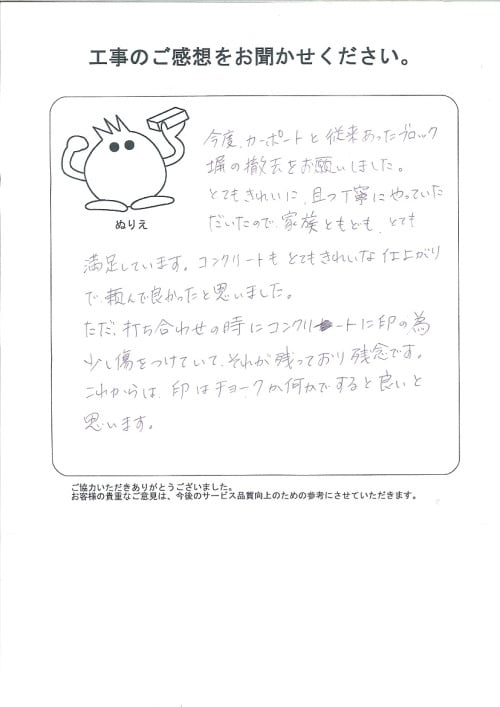 工事のご感想をお聞かせください。
今度、カーポートと従来あったブロック
塀の撤去をお願いしました。
とてもきれいに、且つ丁寧にやっていた
だいたので、家族ともども、とても
ぬりえ
満足しています。コンクリートもとてもきれいな仕上がり
で、頼んで良かったと思いました。
ただ、打ち合わせの時にコンクリートに印の為
少し傷をつけていて、それが残っており残念です。
これからは、印はチョークか何かですると良いと
思います。
ご協力いただきありがとうございました。
お客様の貴重なご意見は、今後のサービス品質向上のための参考にさせていただきます。